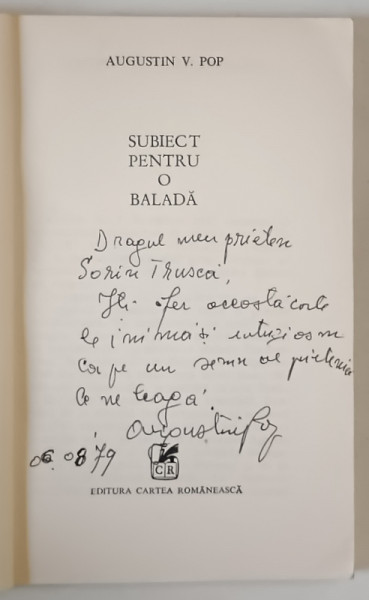 AUGUSTIN V. POP
SUBIECT
PENTRU
O
BALADĂ
Dragul meu prieten
Sorin Trușcă,
Iți ofer această carte
de inimă și entuziasm
ca pe un semn al prieteniei
ce ne leagă.
Augustin Pop
06 08 79
CR
EDITURA CARTEA ROMÂNEASCĂ